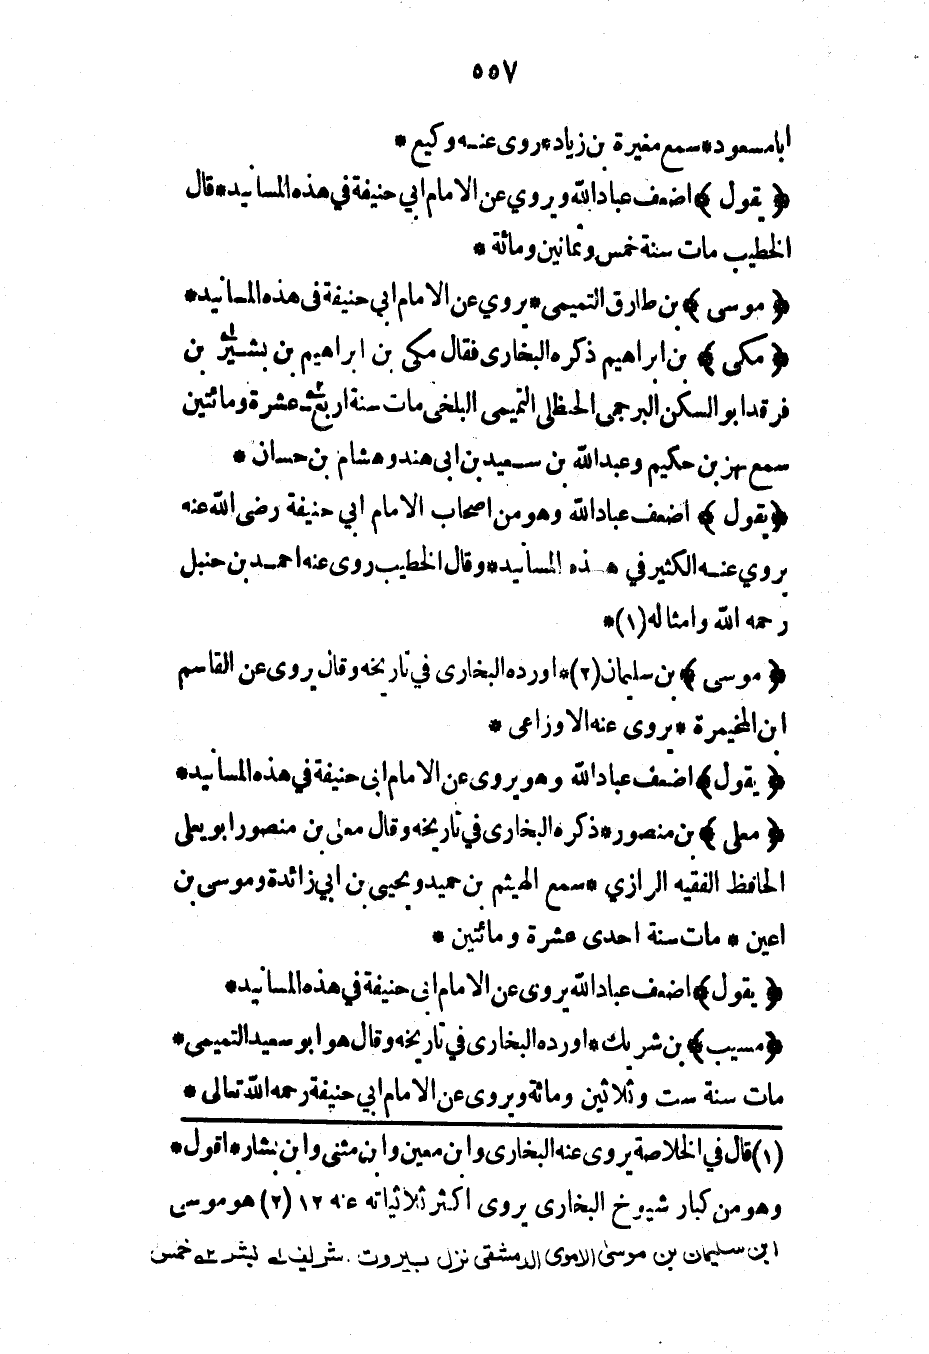 ٥٥٧
ابامسعود*سمع مغيرة بن زياد*روى عنه وكيع *
﴿ يقول ﴾ اضعف عبادالله ويروي عن الامام ابي حنيفة في هذه المسانيد*قال
الخطيب مات سنة خمس وثمانين ومائة *
﴿ موسى ﴾ بن طارق التميمى*يروي عن الامام ابي حنيفة فى هذه المسانيد*
﴿ مكى ﴾ بن ابراهيم ذكره البخارى فقال مكى بن ابراهيم بن بشير بن
فرقدابو السكن البرجمى الحنظلى التميمى البلخى مات سنة اربع عشرة ومائتين
سمع بهز بن حكيم وعبدالله بن سعيد بن ابى هند وهشام بن حسان *
﴿يقول ﴾ اضعف عبادالله وهومن اصحاب الامام ابي حنيفة رضى الله عنه
يروي عنه الكثير في هذه المسانيد*وقال الخطيب روى عنه احمد بن حنبل
رحمه الله وامثاله(١)*
﴿ موسى ﴾ بن سليمان(٢)*اورده البخارى في تاريخه وقال يروى عن القاسم
ابن المخيمرة *يروى عنه الاوزاعى *
﴿ يقول﴾ اضعف عبادالله وهويروى عن الامام ابى حنيفة في هذه المسانيد*
﴿ معلى ﴾ بن منصور*ذكره البخارى في تاريخه وقال معلى بن منصور ابويعلى
الحافظ الفقيه الرازي *سمع الهيثم بن حميد ويحيى بن ابي زائدة وموسى بن
اعين * مات سنة احدى عشرة ومائتين *
﴿ يقول﴾اضعف عبادالله يروى عن الامام ابى حنيفة في هذه المسانيد*
﴿مسيب﴾ بن شريك*اورده البخارى في تاريخه وقال هو ابوسعيد التميمى*
مات سنة ست وثلاثين ومائة ويروى عن الامام ابي حنيفة رحمه الله تعالى *
(١)قال في الخلاصة يروى عنه البخارى وابن معين وابن مثنى وابن بشار*اقول*
وهومن كبار شيوخ البخارى يروى اكثر ثلاثياته عنه ١٢ (٢) هو موسى
ابن سليمان بن موسى الاموى الدمشقى نزل بيروت . شريف لے بشر ٢ے خمس